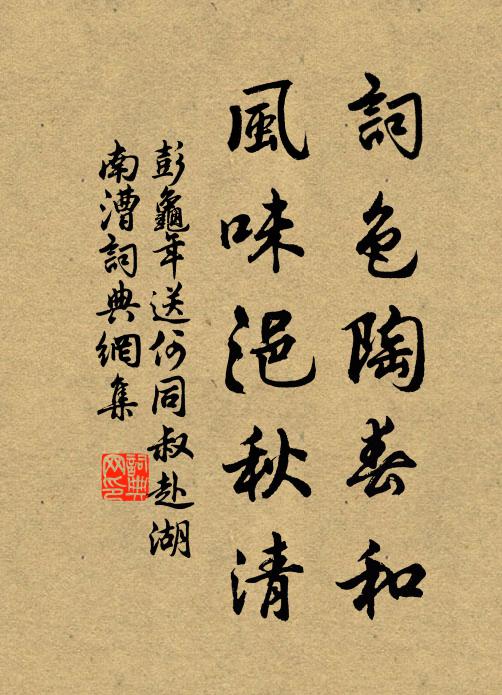 詞色陶春和
風味浥秋清
彭龜年送何同叔赴湖
南漕詞典網集
詞典
网印